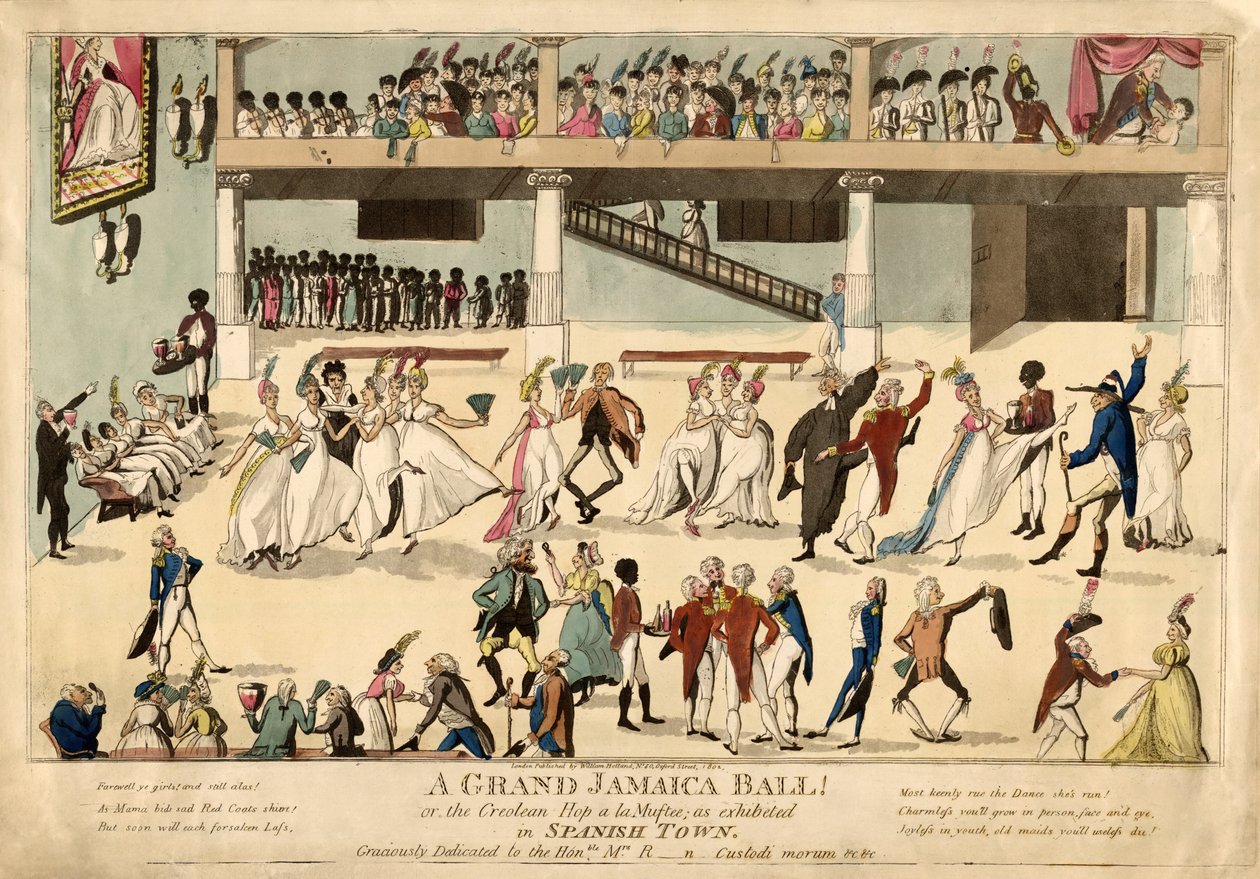 London Published by William Holland, No. 50, Oxford Street, 1802.
A GRAND JAMAICA BALL!
or the Creolean Hop a la Muftee; as exhibeted
in SPANISH TOWN.
Graciously Dedicated to the Honble. Mrs R__n Custodi morum &c &c
Farewell ye girls! and still alas!
As Mama bids sad Red Coats shine!
But soon will each forsaken Lass,
Most keenly rue the Dance she's run!
Charmless you'll grow in person, face and eye,
Joyless in youth, old maids you'll useless die!